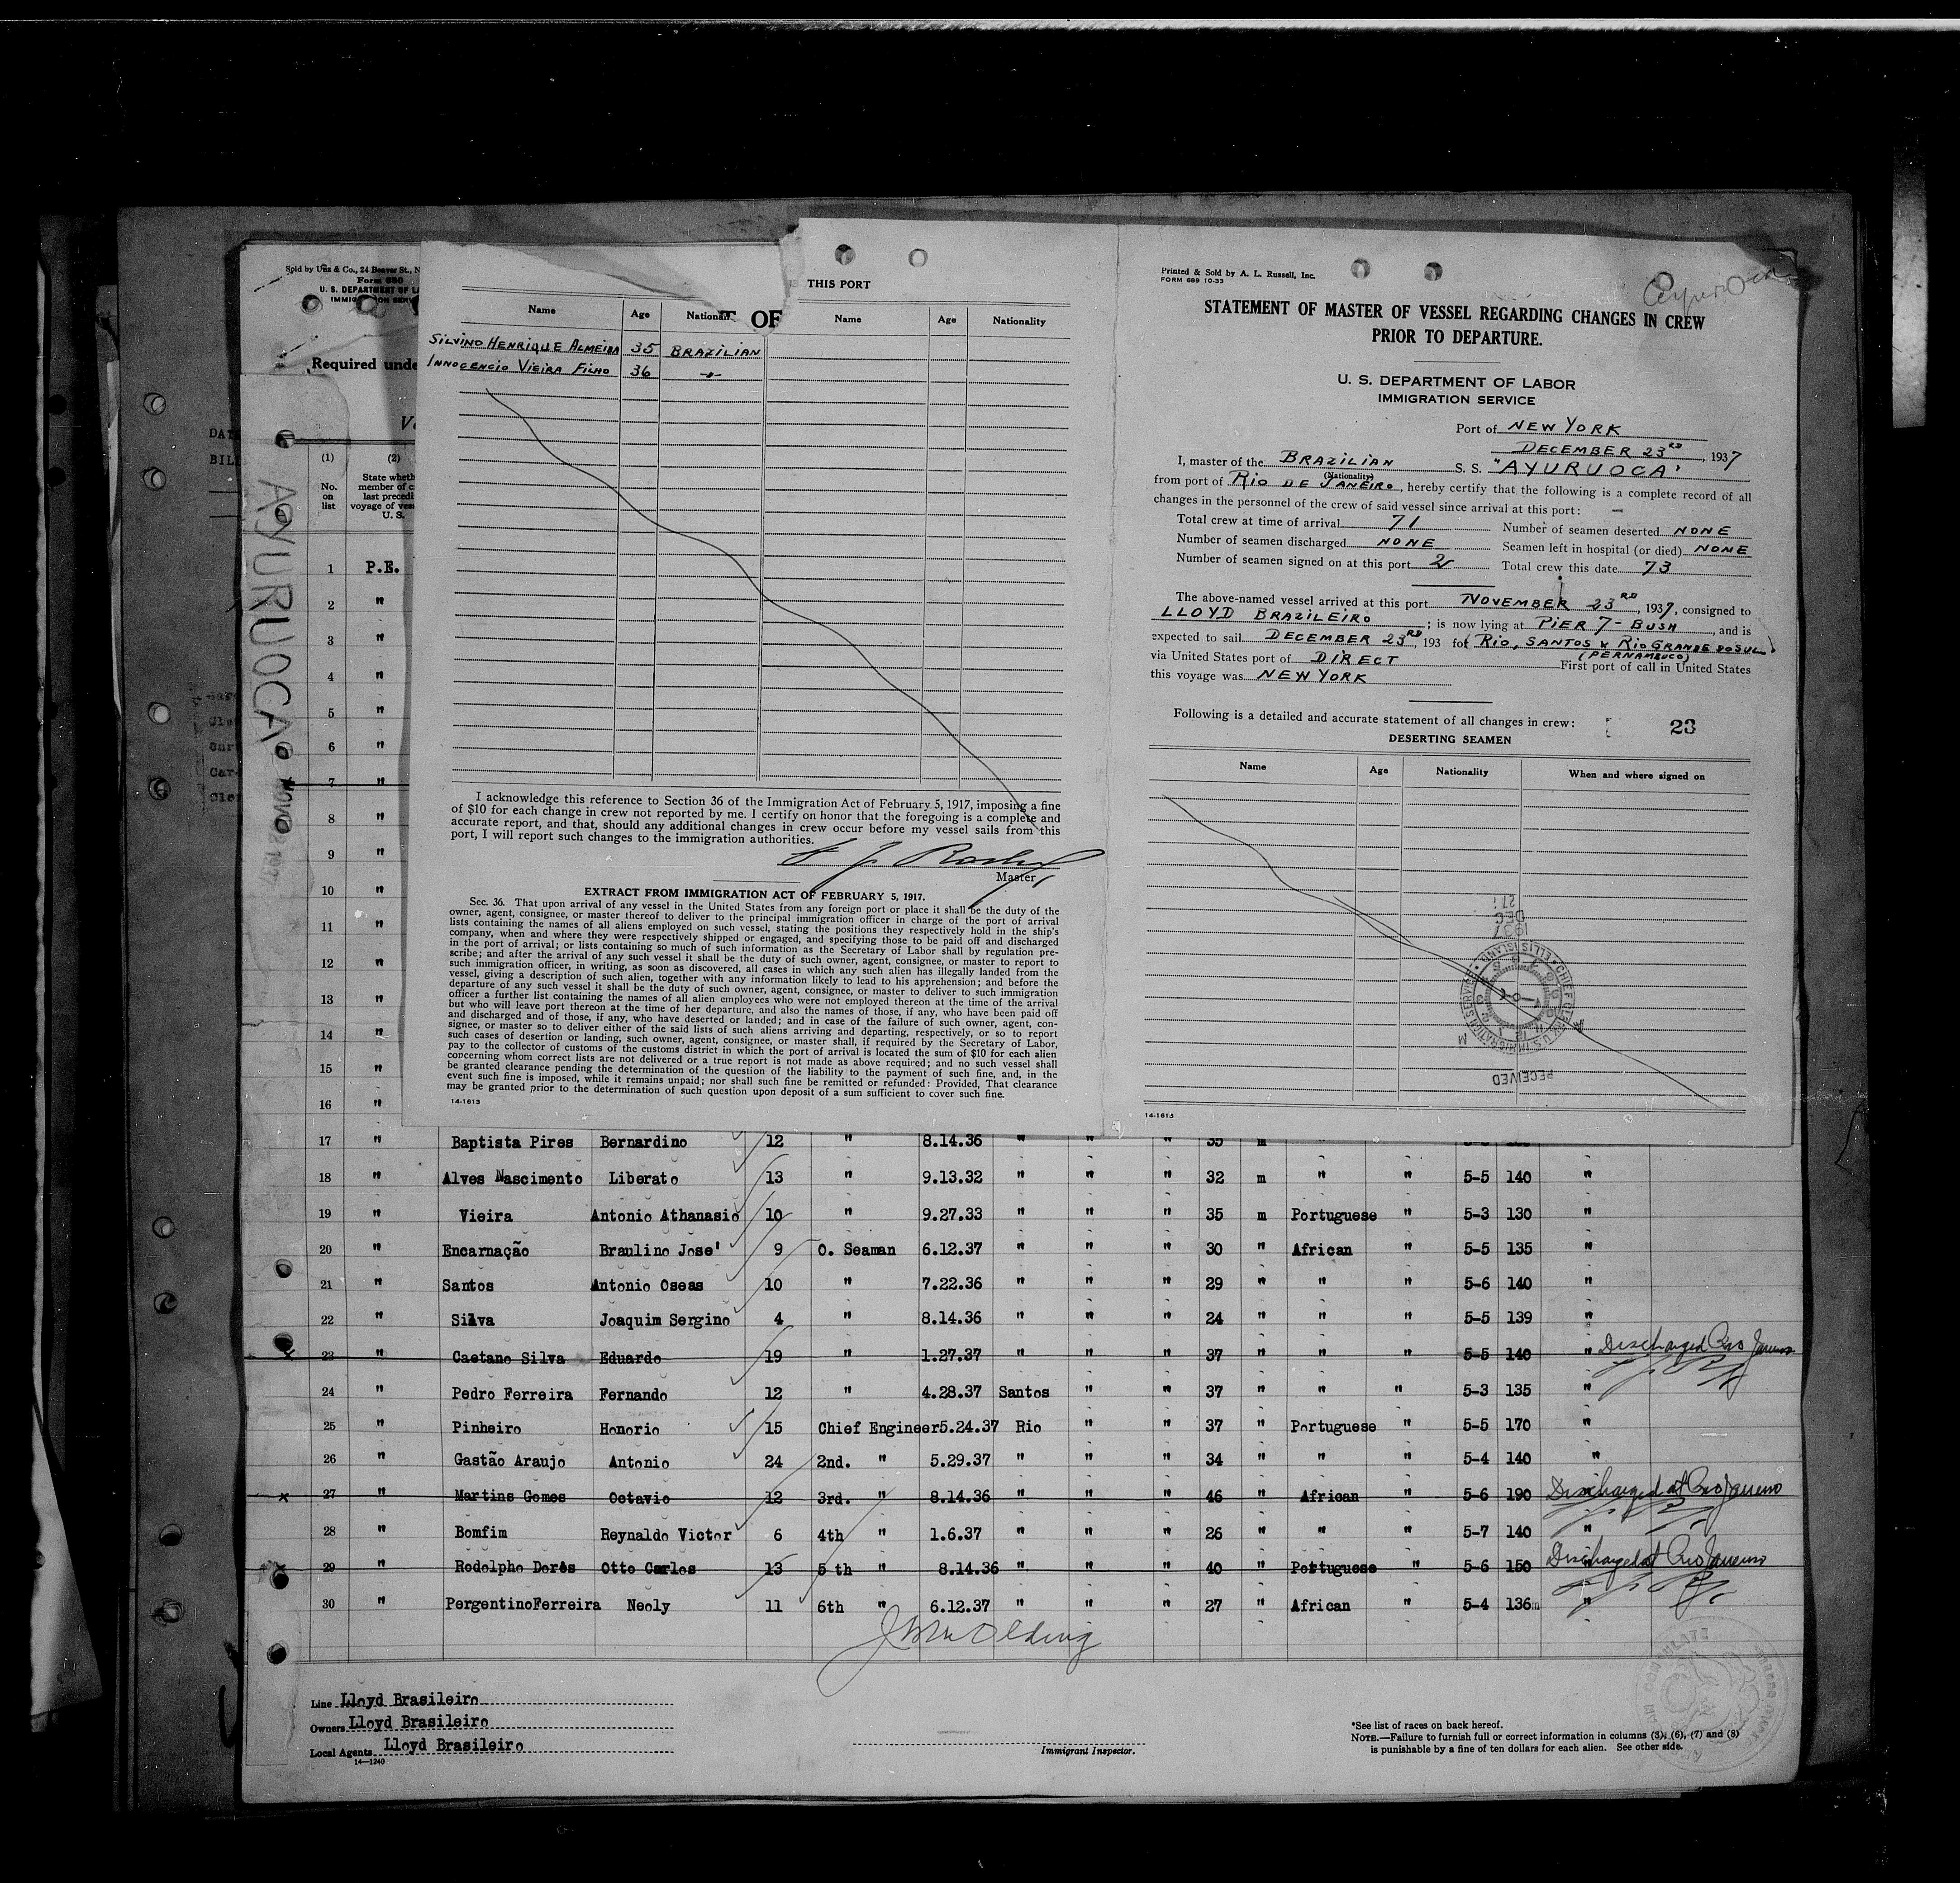 Sold by Unz & Co., 24 Beaver St., N
Form 680
U. S. DEPARTMENT OF LA
IMMIGRATION SERV
Required unde
(1) (2)
No. on list
State wheth
member of c
last precedi
voyage of ves
U. S.
AYURUOCA
1 P.E.
2 "
3 "
4 "
5 "
6 "
7 "
8 "
9 "
10 "
11 "
12 "
13 "
14 "
15 "
16 "
THIS PORT
T OF
Name Age National Name Age Nationality
SILVINO HENRIQUE ALMEIDA 35 BRAZILIAN
INNOCENCIO VIEIRA FILHO 36 -"-
I acknowledge this reference to Section 36 of the Immigration Act of February 5, 1917, imposing a fine
of $10 for each change in crew not reported by me. I certify on honor that the foregoing is a complete and
accurate report, and that, should any additional changes in crew occur before my vessel sails from this
port, I will report such changes to the immigration authorities.
Master
EXTRACT FROM IMMIGRATION ACT OF FEBRUARY 5, 1917.
Sec. 36. That upon arrival of any vessel in the United States from any foreign port or place it shall be the duty of the
owner, agent, consignee, or master thereof to deliver to the principal immigration officer in charge of the port of arrival
lists containing the names of all aliens employed on such vessel, stating the positions they respectively hold in the ship's
company, when and where they were respectively shipped or engaged, and specifying those to be paid off and discharged
in the port of arrival; or lists containing so much of such information as the Secretary of Labor shall by regulation pre-
scribe; and after the arrival of any such vessel it shall be the duty of such owner, agent, consignee, or master to report to
such immigration officer, in writing, as soon as discovered, all cases in which any such alien has illegally landed from the
vessel, giving a description of such alien, together with any information likely to lead to his apprehension; and before the
departure of any such vessel it shall be the duty of such owner, agent, consignee, or master to deliver to such immigration
officer a further list containing the names of all alien employees who were not employed thereon at the time of the arrival
but who will leave port thereon at the time of her departure, and also the names of those, if any, who have been paid off
and discharged and of those, if any, who have deserted or landed; and in case of the failure of such owner, agent, con-
signee, or master so to deliver either of the said lists of such aliens arriving and departing, respectively, or so to report
such cases of desertion or landing, such owner, agent, consignee, or master shall, if required by the Secretary of Labor,
pay to the collector of customs of the customs district in which the port of arrival is located the sum of $10 for each alien
concerning whom correct lists are not delivered or a true report is not made as above required; and no such vessel shall
be granted clearance pending the determination of the question of the liability to the payment of such fine, and, in the
event such fine is imposed, while it remains unpaid; nor shall such fine be remitted or refunded: Provided, That clearance
may be granted prior to the determination of such question upon deposit of a sum sufficient to cover such fine.
14-1613
Printed & Sold by A. L. Russell, Inc.
FORM 689 10-33
Ayuruoca
STATEMENT OF MASTER OF VESSEL REGARDING CHANGES IN CREW
PRIOR TO DEPARTURE.
U. S. DEPARTMENT OF LABOR
IMMIGRATION SERVICE
Port of NEW YORK
DECEMBER 23RD, 1937
I, master of the BRAZILIAN S. S. "AYURUOCA"
(Nationality)
from port of RIO DE JANEIRO, hereby certify that the following is a complete record of all
changes in the personnel of the crew of said vessel since arrival at this port:
Total crew at time of arrival 71 Number of seamen deserted NONE
Number of seamen discharged NONE Seamen left in hospital (or died) NONE
Number of seamen signed on at this port 2 Total crew this date 73
The above-named vessel arrived at this port NOVEMBER 23RD, 1937, consigned to
LLOYD BRAZILEIRO; is now lying at PIER 7 - BUSH, and is
expected to sail DECEMBER 23RD, 193 for RIO, SANTOS & RIO GRANDE DO SUL
(PERNAMBUCO)
via United States port of DIRECT First port of call in United States
this voyage was NEW YORK
Following is a detailed and accurate statement of all changes in crew: 23
DESERTING SEAMEN
Name Age Nationality When and where signed on
RECEIVED
DEC 27
1937
CHIEF U.S. IMMIGRATION SERVICE ELLIS ISLAND
14-1613
17 " Baptista Pires Bernardino 12 " 8.14.36 " " " 35 m
18 " Alves Nascimento Liberato 13 " 9.13.32 " " " 32 m " " 5-5 140 "
19 " Vieira Antonio Athanasio 10 " 9.27.33 " " " 35 m Portuguese " 5-3 130 "
20 " Encarnação Braulino Jose' 9 O. Seaman 6.12.37 " " " 30 " African " 5-5 135 "
21 " Santos Antonio Oseas 10 " 7.22.36 " " " 29 " " " 5-6 140 "
22 " Silva Joaquim Sergino 4 " 8.14.36 " " " 24 " " " 5-5 139 "
23 " Caetano Silva Eduardo 19 " 1.27.37 " " " 37 " " " 5-5 140 " Discharged Rio Janeiro
24 " Pedro Ferreira Fernando 12 " 4.28.37 Santos " " 37 " " " 5-3 135 "
25 " Pinheiro Honorio 15 Chief Engineer 5.24.37 Rio " " 37 " Portuguese " 5-5 170 "
26 " Gastão Araujo Antonio 24 2nd. " 5.29.37 " " " 34 " " " 5-4 140 "
27 " Martins Gomes Octavio 12 3rd. " 8.14.36 " " " 46 " African " 5-6 190 " Discharged at Rio Janeiro
28 " Bomfim Reynaldo Victor 6 4th " 1.6.37 " " " 26 " " " 5-7 140 "
29 " Rodolpho Dorês Otto Carlos 13 5 th " 8.14.36 " " " 40 " Portuguese " 5-6 150 " Discharged at Rio Janeiro
30 " PergentinoFerreira Neoly 11 6th " 6.12.37 " " " 27 " African " 5-4 136 "
Line Lloyd Brasileiro
Owners Lloyd Brasileiro
Local Agents Lloyd Brasileiro
14-1240
Immigrant Inspector.
*See list of races on back hereof.
NOTE.—Failure to furnish full or correct information in columns (3), (6), (7) and (8)
is punishable by a fine of ten dollars for each alien. See other side.